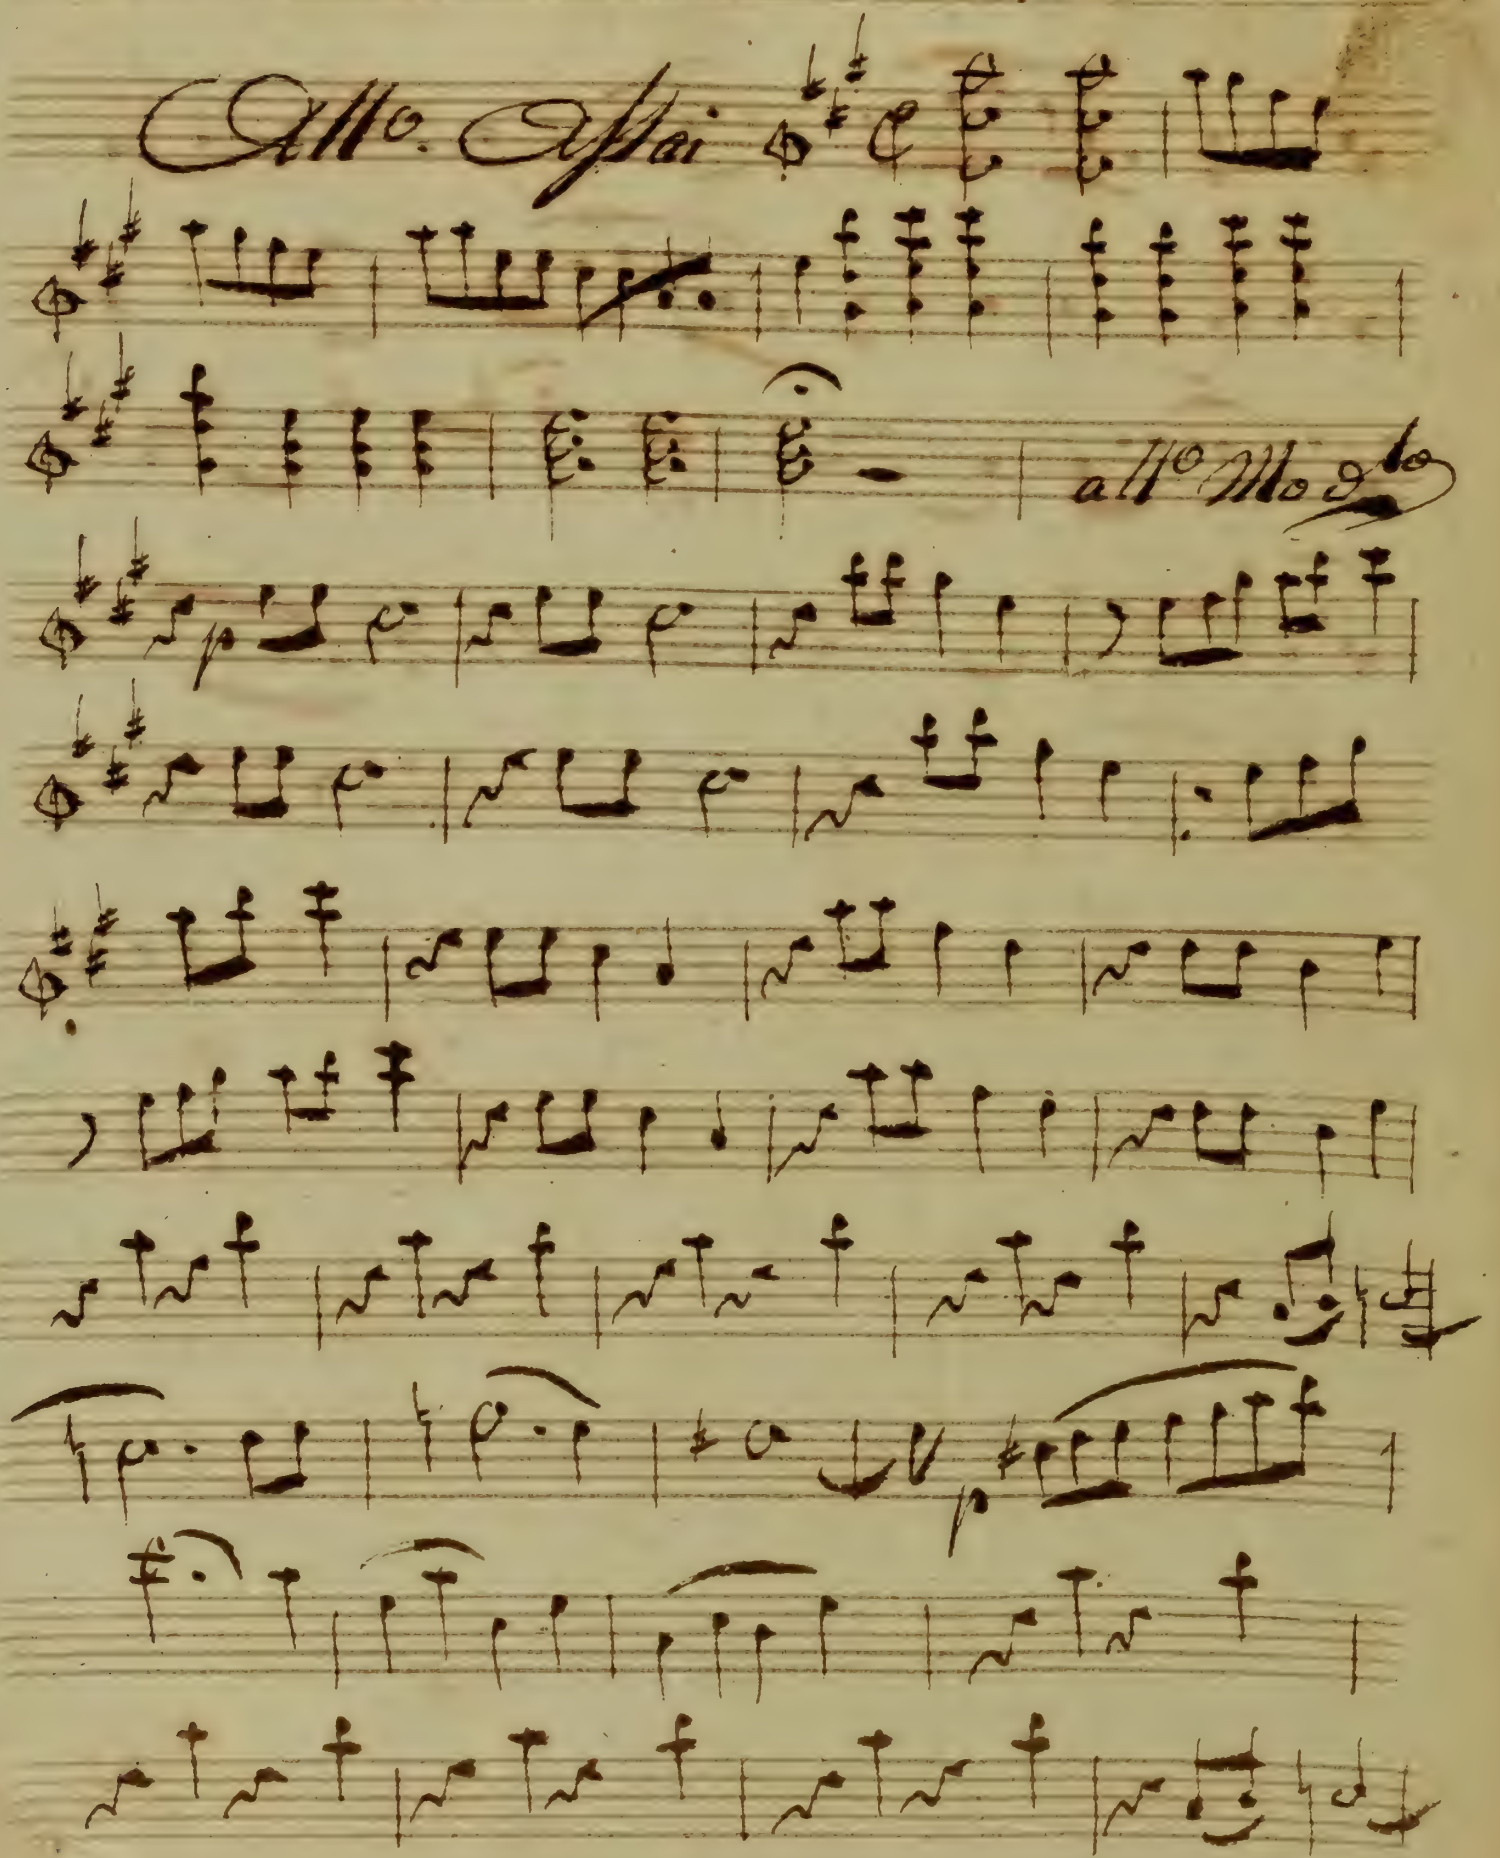 All.o Assai
all.o Mod.to
p
p